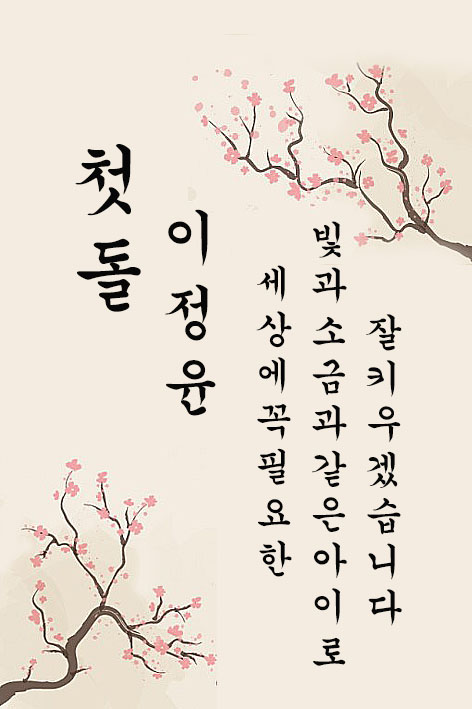 첫돌
이정윤
세상에꼭필요한
빛과소금과같은아이로
잘키우겠습니다